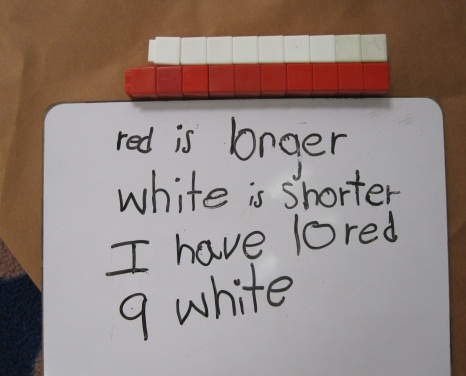 red is longer
white is shorter
I have 10 red
9 white